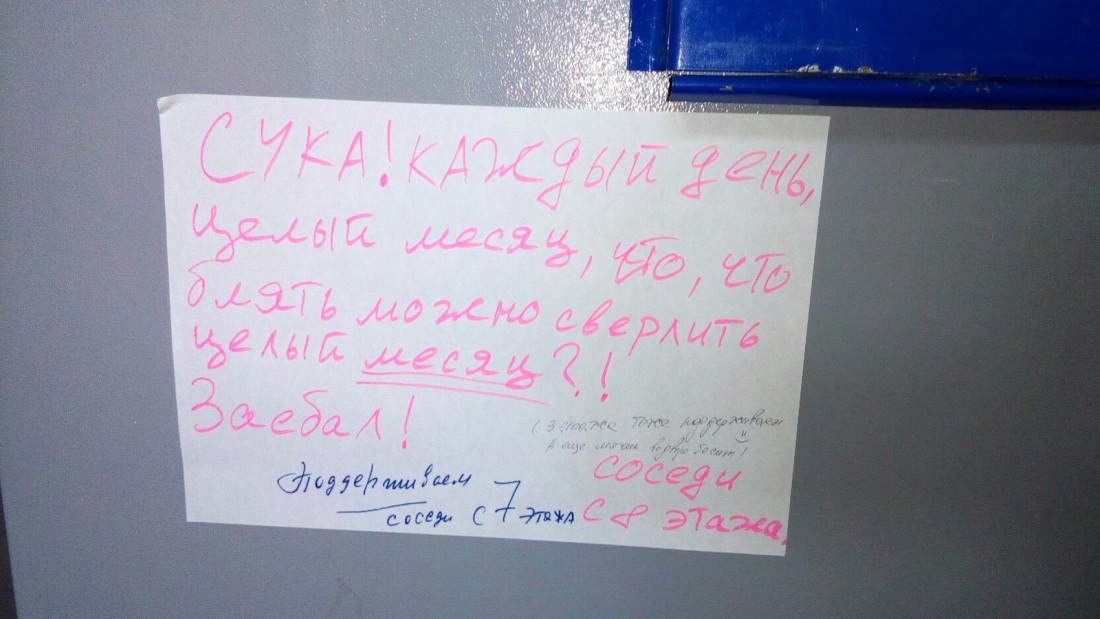 СУКА! КАЖДЫЙ ДЕНЬ,
целый месяц, что, что
блять можно сверлить
целый месяц?!
Заебал!
с 3 этажа тоже поддерживаем
А еще бесит!
соседи
с 8 этажа.
Поддерживаем
соседи с 7 этажа